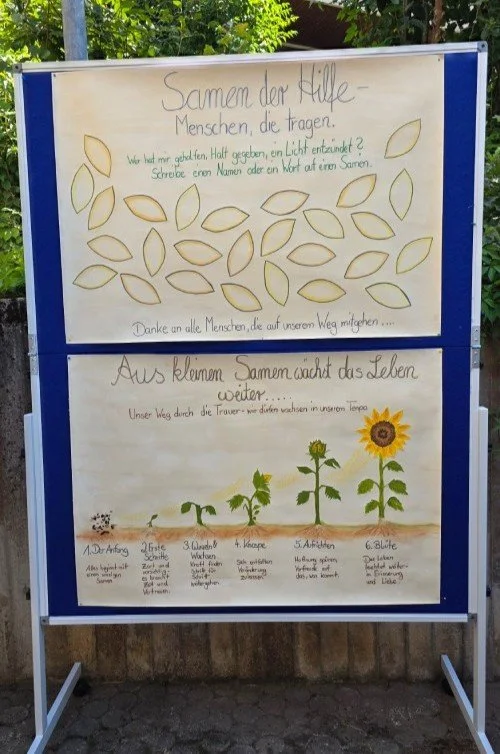 Samen der Hilfe -
Menschen, die tragen.
Wer hat mir geholfen, Halt gegeben, ein Licht entzündet?
Schreibe einen Namen oder ein Wort auf einen Samen.
Danke an alle Menschen, die auf unserem Weg mitgehen ....
Aus kleinen Samen wächst das Leben
weiter.....
Unser Weg durch die Trauer - wir dürfen wachsen in unserem Tempo
1. Der Anfang
Alles beginnt mit
einem winzigen
Samen
2. Erste
Schritte
Zart und
vorsichtig -
es braucht
Zeit und
Vertrauen
3. Wurzeln &
Wachsen
Kraft finden
Stück für
Stück
weitergehen
4. Knospe
Sich entfalten
Veränderung
zulassen
5. Aufrichten
Hoffnung spüren,
Vorfreude auf
das, was kommt.
6. Blüte
Das Leben
leuchtet weiter -
in Erinnerung
und Liebe